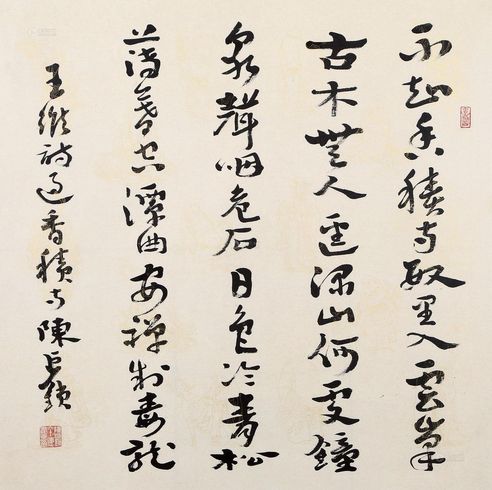 不知香積寺數里入雲峯
古木無人逕深山何處鐘
泉聲咽危石日色冷青松
薄暮空潭曲安禪制毒龍
王維詩過香積寺陳巨鎖